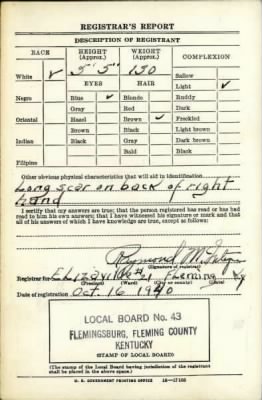 REGISTRAR'S REPORT
DESCRIPTION OF REGISTRANT
RACE HEIGHT (Approx.) WEIGHT (Approx.) COMPLEXION
White ✓ 5' 5" 130 Sallow
EYES HAIR Light ✓
Negro Blue ✓ Blonde Ruddy
Gray Red Dark
Oriental Hazel Brown ✓ Freckled
Brown Black Light brown
Indian Black Gray Dark brown
Bald Black
Filipino
Other obvious physical characteristics that will aid in identification
Long scar on back of right
hand
I certify that my answers are true; that the person registered has read or has had
read to him his own answers; that I have witnessed his signature or mark and that
all of his answers of which I have knowledge are true, except as follows:
Raymond M.
(Signature of registrar)
Registrar for Fleming Ky
(Precinct) (Ward) (City or county) (State)
Date of registration Oct. 16 1940
LOCAL BOARD No. 43
FLEMINGSBURG, FLEMING COUNTY
KENTUCKY
(STAMP OF LOCAL BOARD)
(The stamp of the Local Board having jurisdiction of the registrant
shall be placed in the above space.)
U. S. GOVERNMENT PRINTING OFFICE 16—17105